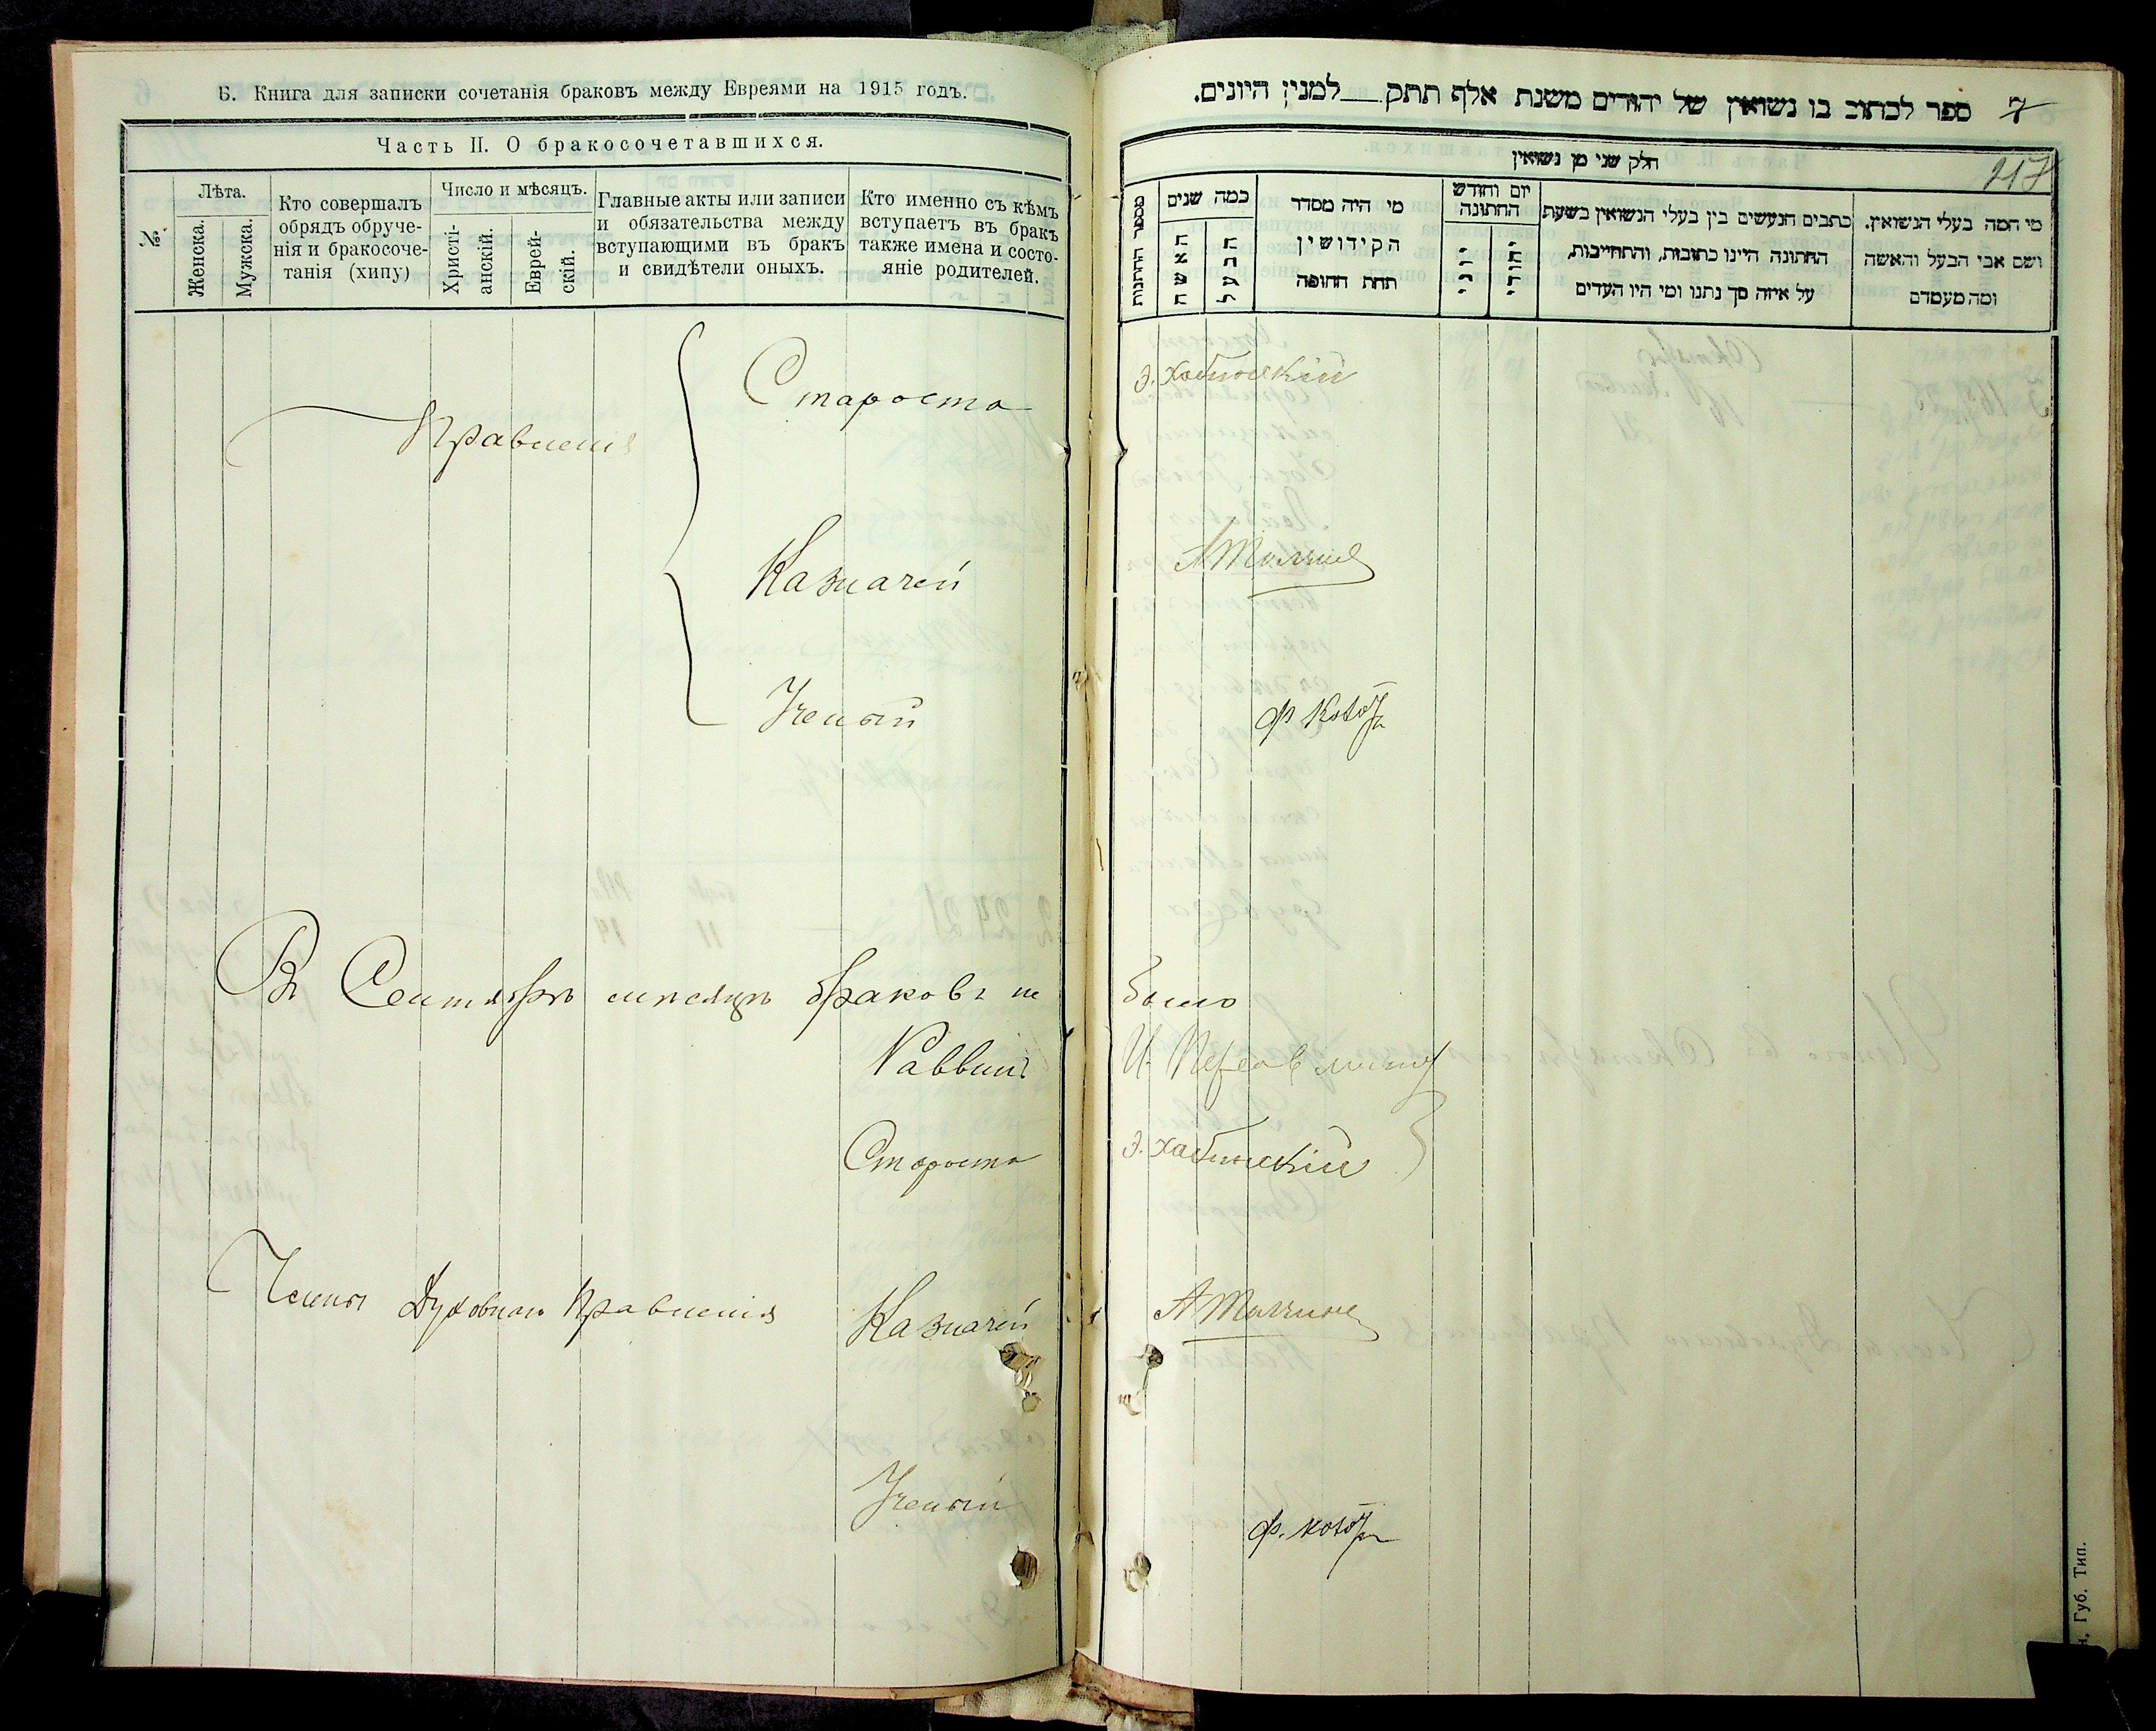 Б. Книга для записки сочетанія браковъ между Евреями на 1915 годъ.
Часть II. О бракосочетавшихся.
№
Лѣта.
Женска.
Мужска.
Кто совершалъ
обрядъ обруче-
нія и бракосоче-
танія (хипу)
Число и мѣсяцъ.
Христі-
анскій.
Еврей-
скій.
Главные акты или записи
и обязательства между
вступающими въ бракъ
и свидѣтели оныхъ.
Кто именно съ кѣмъ
вступаетъ въ бракъ
также имена и состо-
яніе родителей.
Правленія
Староста
Казначей
Ученый
Въ Сентябрѣ мѣсяцѣ браковъ не
Раввинъ
Староста
Члены Духовнаго Правленія
Казначей
Ученый
ספר לכתוב בו נשואין של יהודים משנת אלף תתק למנין היונים.
7
217
חלק שני מן נשואין
מספר החתונות
כמה שנים
האשה
הבעל
מי היה מסדר
הקידושין
תחת החופה
יום וחודש
החתונה
יוני
יהודי
כתבים הנעשים בין בעלי הנשואין בשעת
החתונה היינו כתובות, והתחייבות,
על איזה סך נתנו ומי היו העדים
מי המה בעלי הנשואין.
ושם אבי הבעל והאשה
ומה מעמדם
Э. Хабинскій
Ф Котон
было
Э. Хабинскій
Ф. Котон
Губ. Тип.